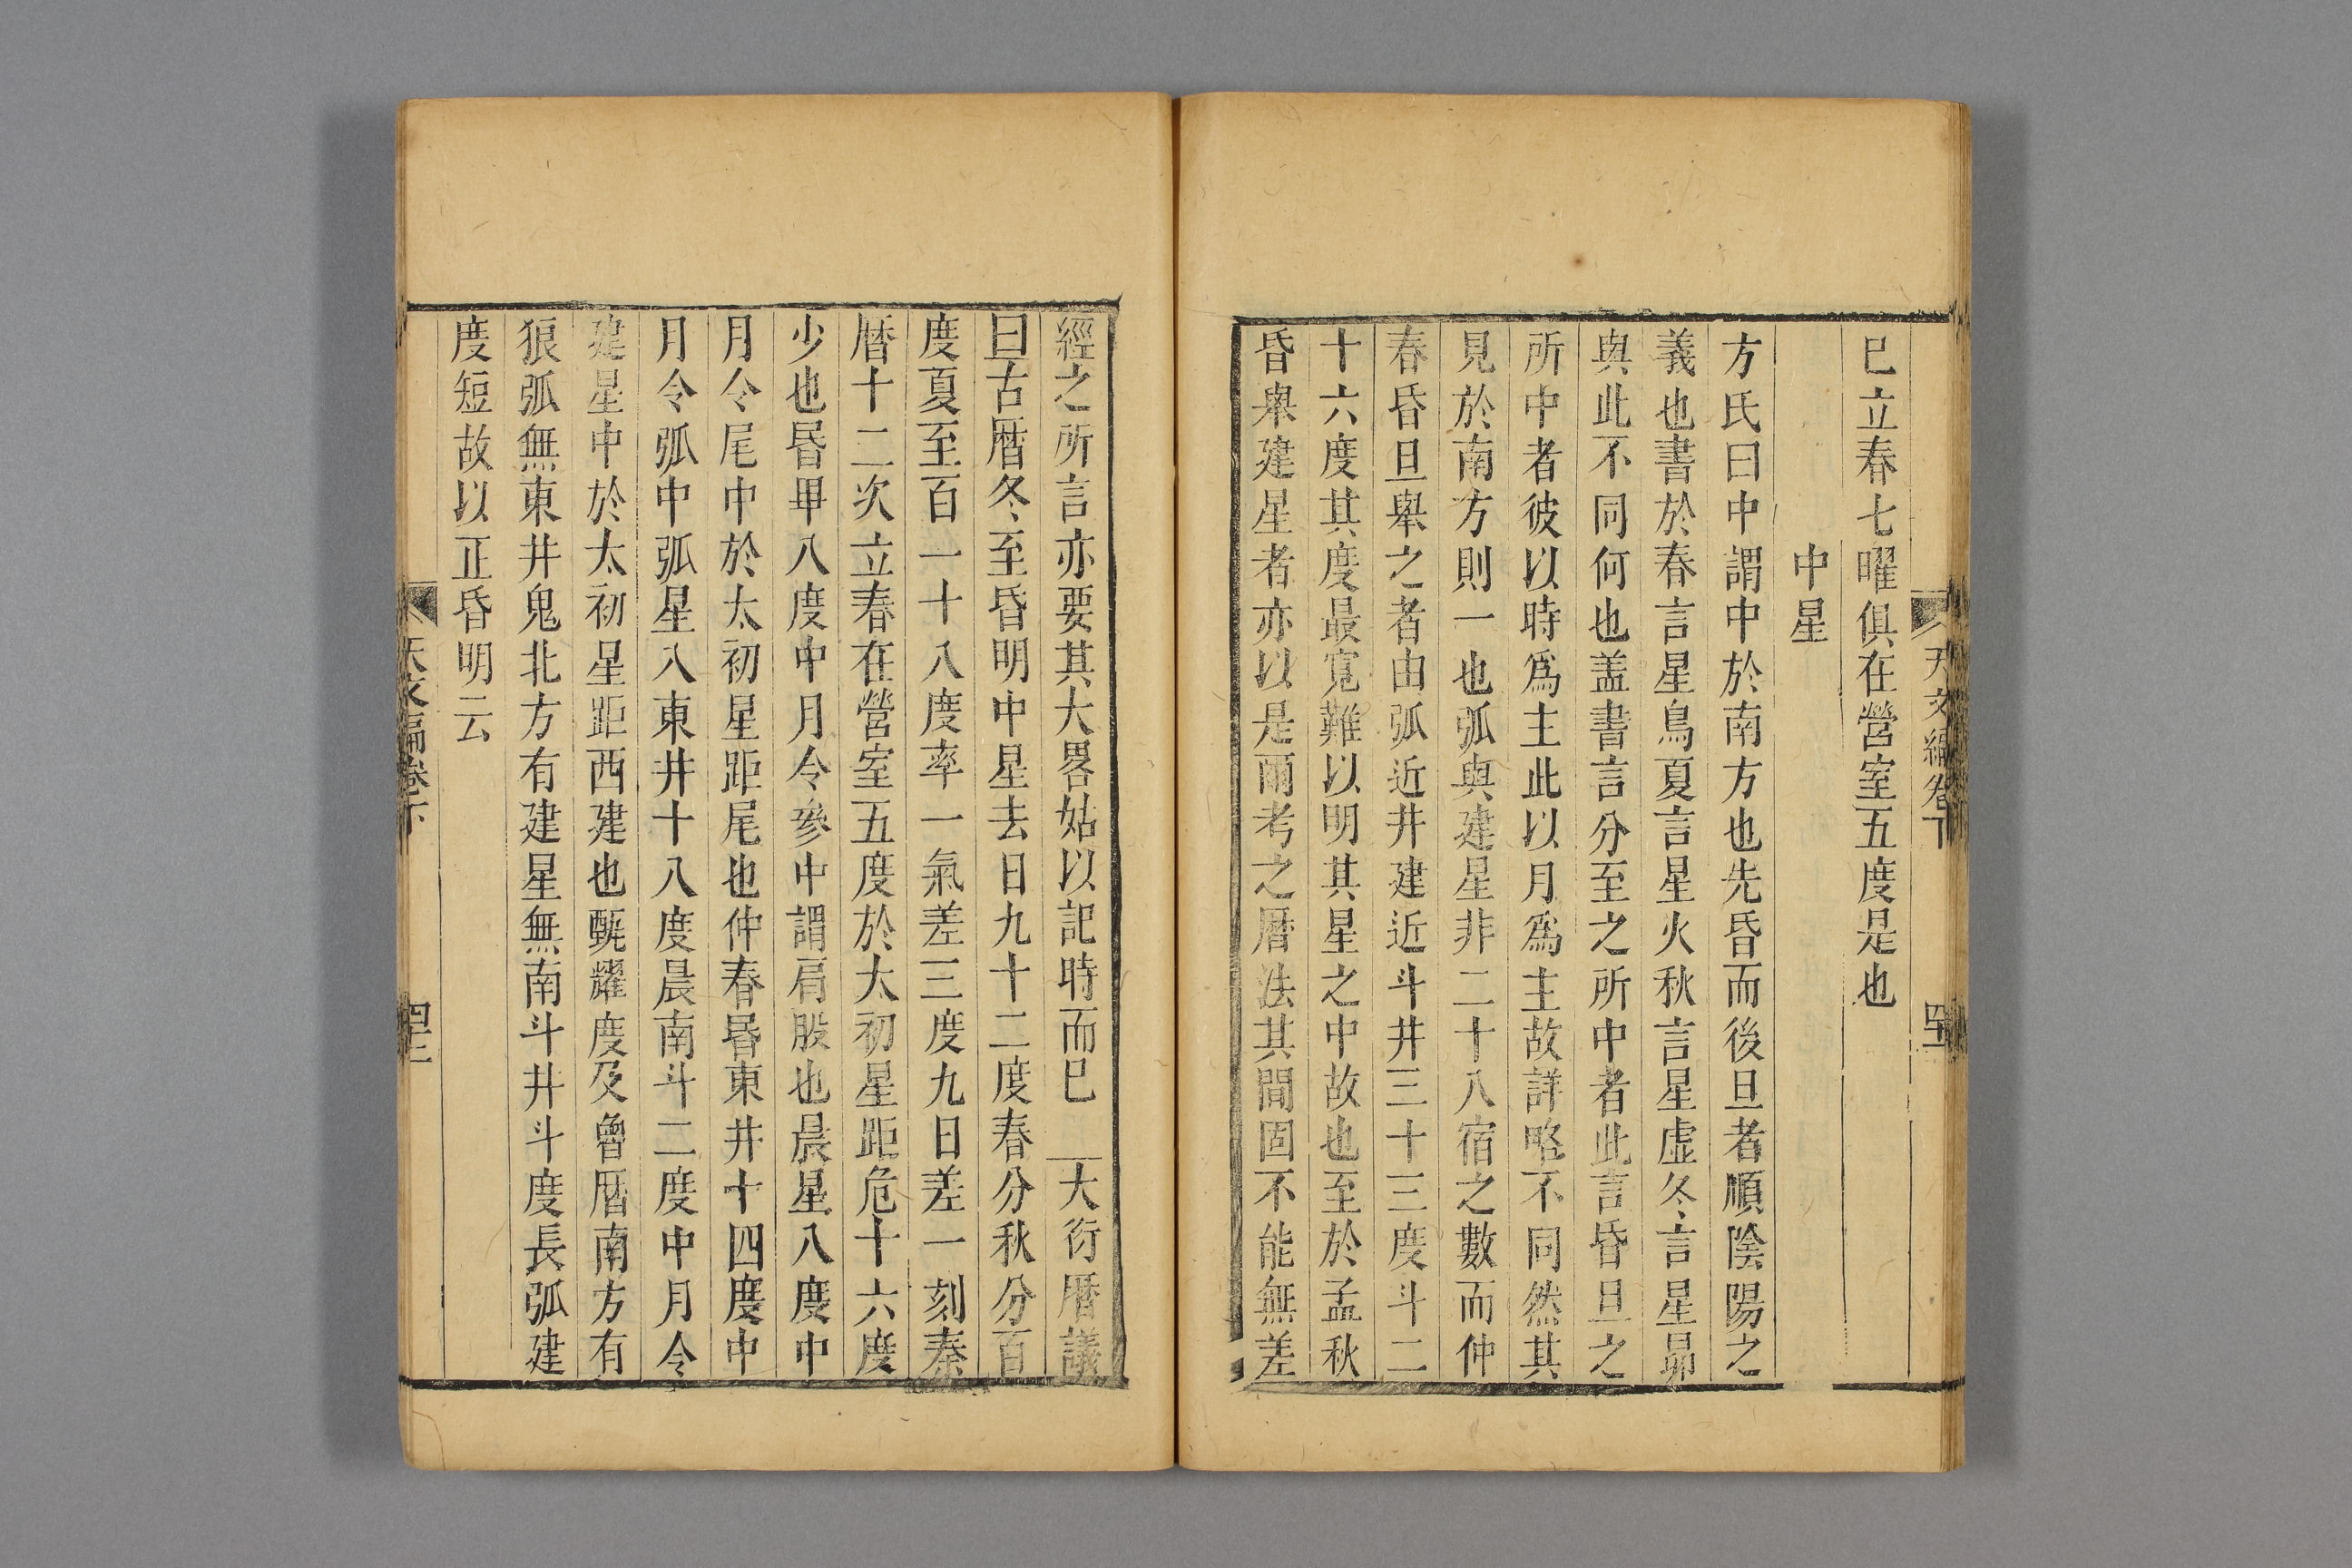 天文編卷下
巳立春七曜俱在營室五度是也
中星
方氏曰中謂中於南方也先昏而後旦者順陰陽之
義也書於春言星鳥夏言星火秋言星虛冬言星昴
與此不同何也盖書言分至之所中者此言昏旦之
所中者彼以時爲主此以月爲主故詳略不同然其
見於南方則一也弧與建星非二十八宿之數而仲
春昏旦舉之者由弧近井建近斗井三十三度斗二
十六度其度最寬難以明其星之中故也至於孟秋
昏舉建星者亦以是爾考之曆法其間固不能無差
經之所言亦要其大畧姑以記時而巳 大衍曆議
曰古曆冬至昏明中星去日九十二度春分秋分百
度夏至百一十八度率一氣差三度九日差一刻秦
曆十二次立春在營室五度於太初星距危十六度
少也昏畢八度中月令參中謂肩股也晨星八度中
月令尾中於太初星距尾也仲春昏東井十四度中
月令弧中弧星入東井十八度晨南斗二度中月令
建星中於太初星距西建也甄耀度及魯曆南方有
狼弧無東井鬼北方有建星無南斗井斗度長弧建
度短故以正昏明云
天文編卷下